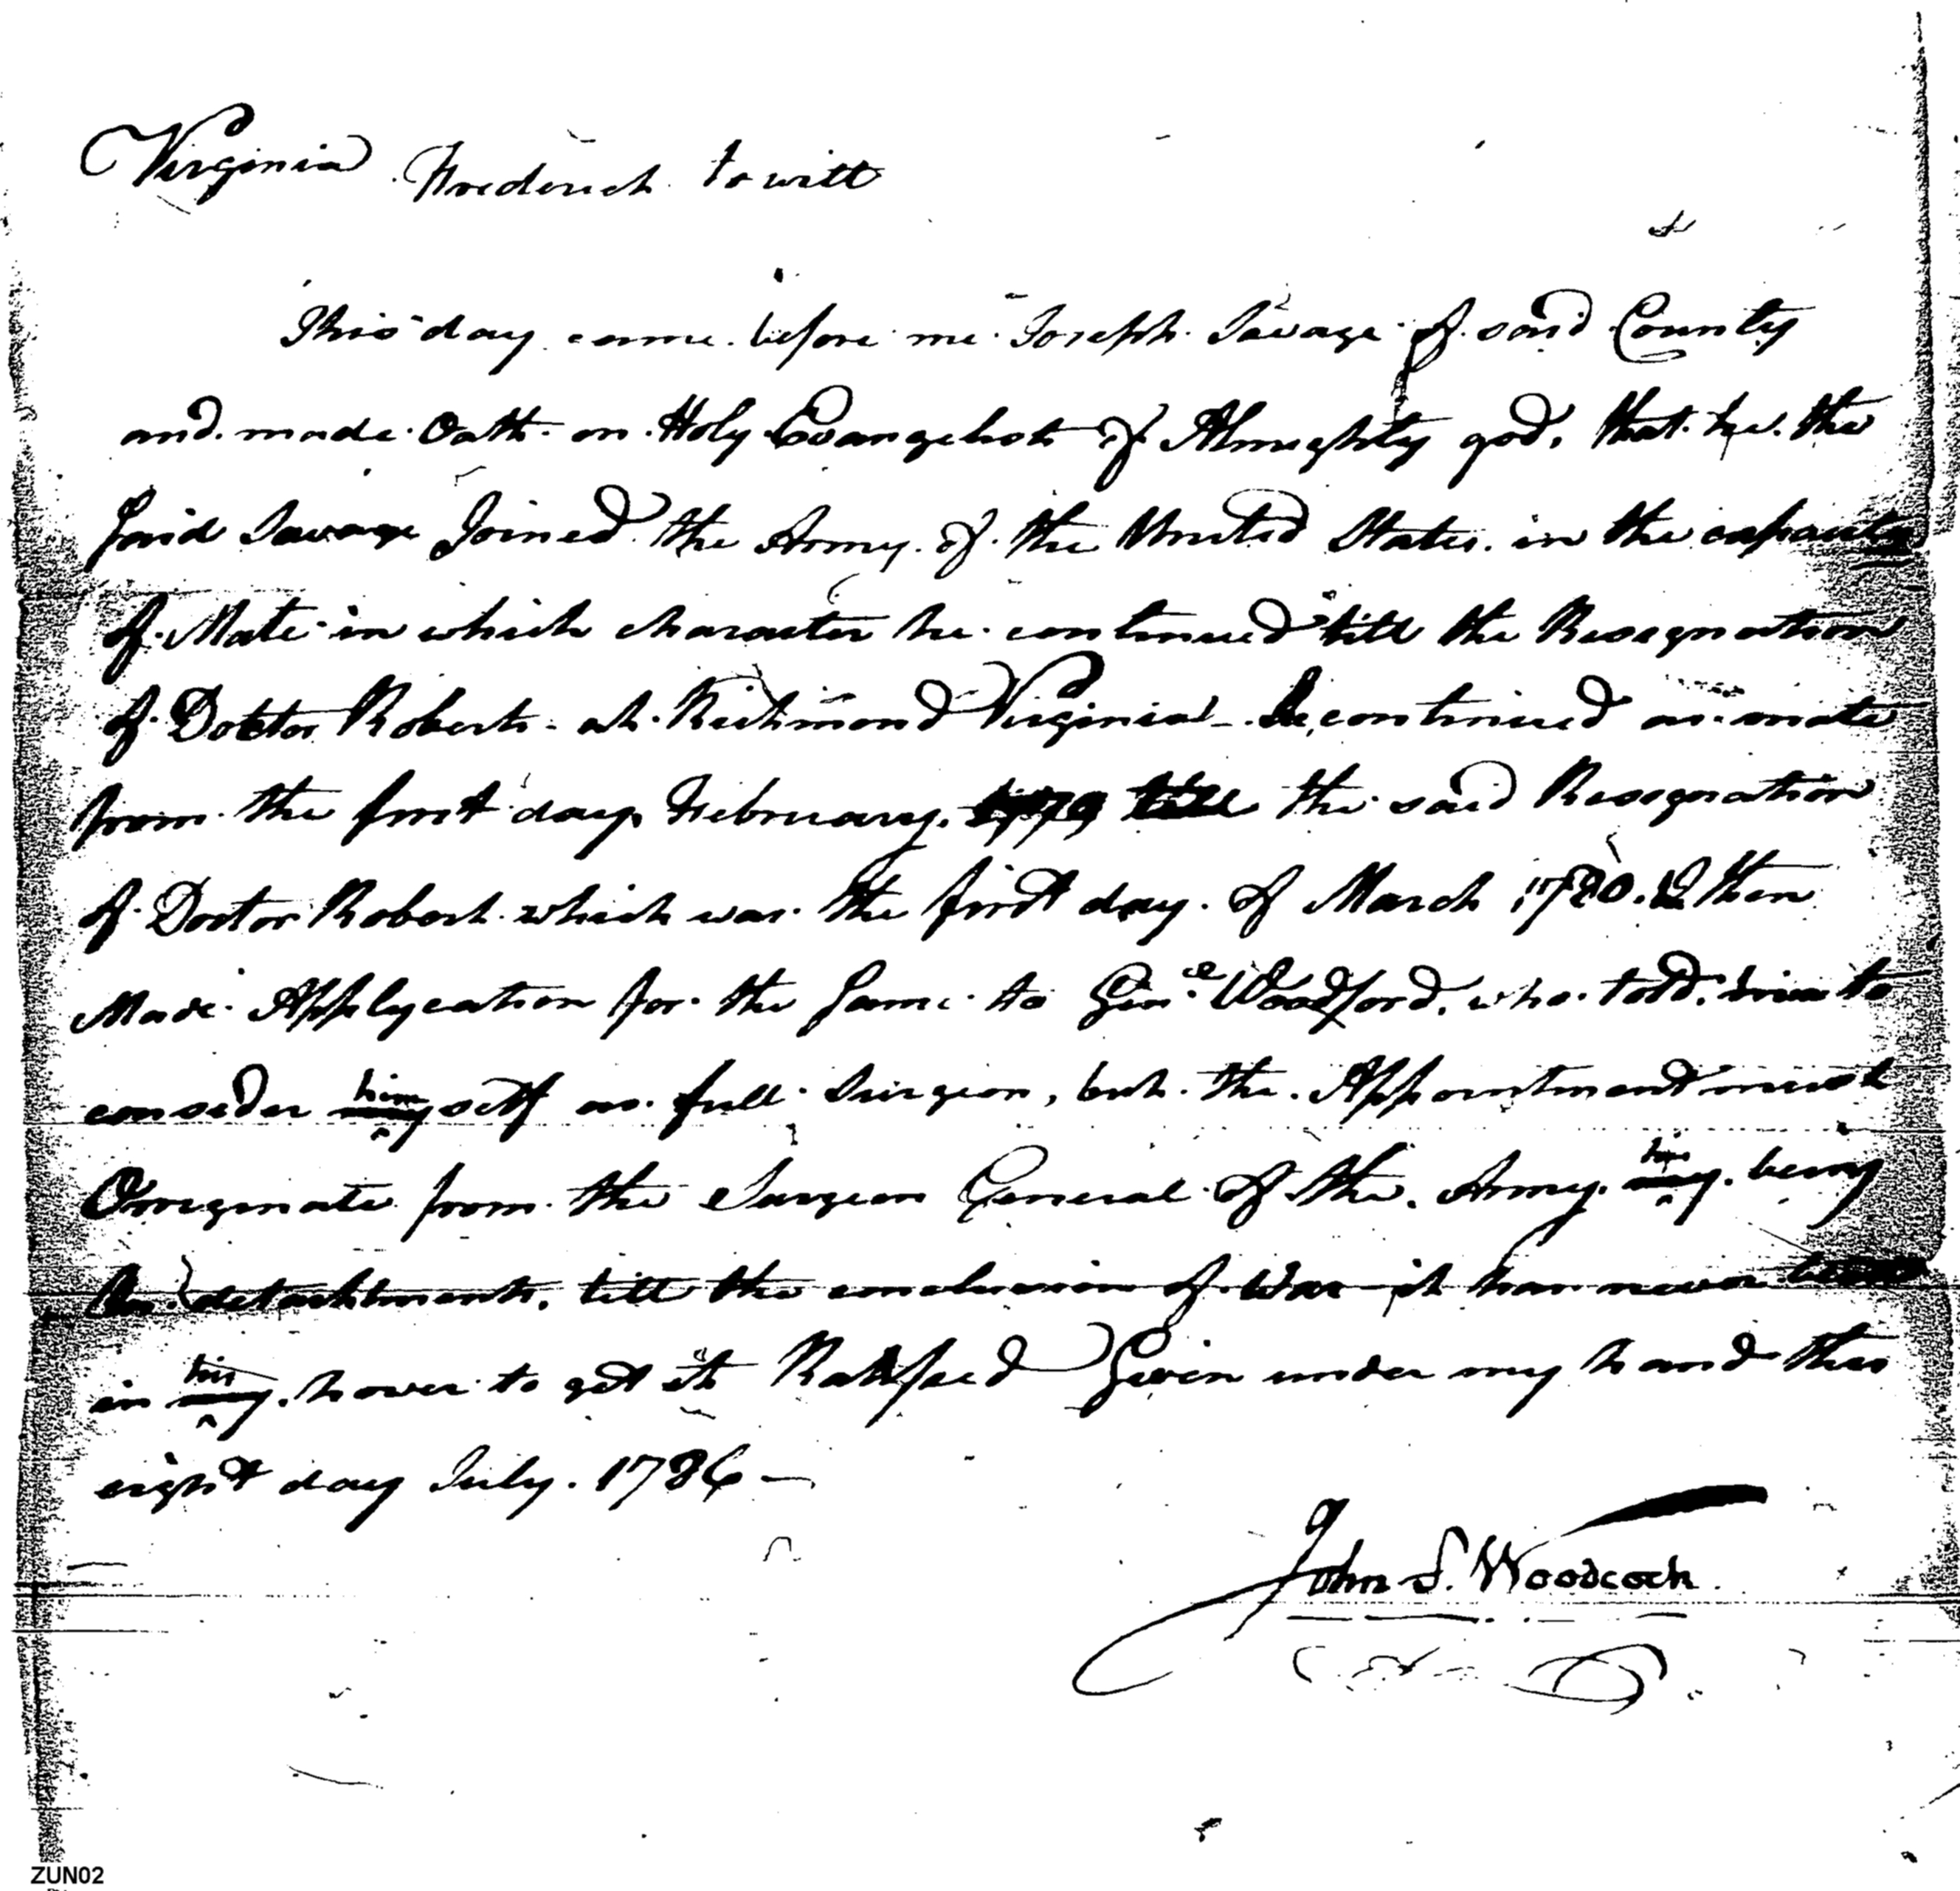 Virginia Frederick to witt
This day came before me Joseph Savage of said County
and made Oath on Holy Evangelist of Almighty god, that he the
said Savage Joined the Army of the United States in the capacity
of Mate in which character he continued till the Resignation
of Doctor Robert at Richmond Virginia continued as mate
from the first day February 1779 till the said Resignation
of Doctor Robert which was the first day of March 1780. then
Made Applycation for the same to Genl Woodford, who told him to
consider him my self as full Surgeon, but the Appointment must
Orreginate from the Surgeon General of the Army my being
On detachment, till the conclusion of War it has never been
in his my power to get it Ratifyed Given under my hand this
eight day July. 1786 —
John S. Woodcock
ZUN02